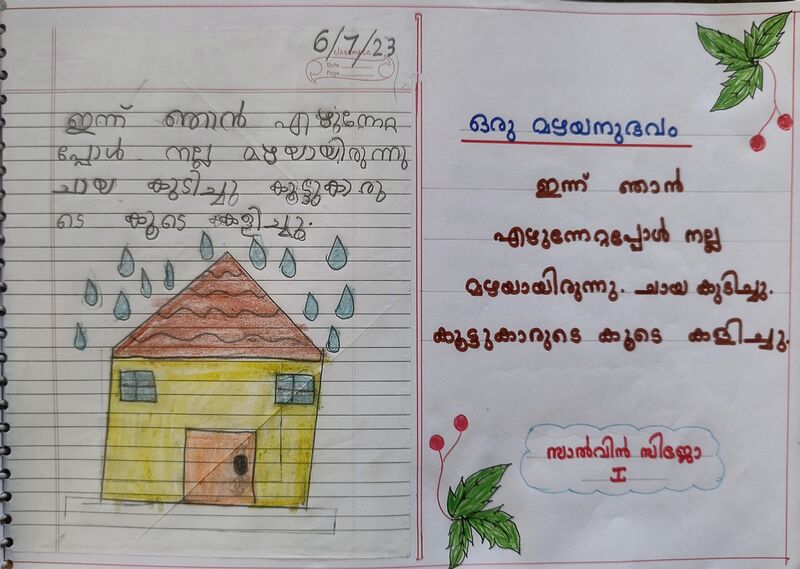 6/7/23
CLASSMATE
Date
Page
ഇന്ന് ഞാൻ എഴുന്നേറ്റ
പ്പോൾ നല്ല മഴയായിരുന്നു
ചായ കുടിച്ചു കൂട്ടുകാരു
ടെ കൂടെ കളിച്ചു.
ഒരു മഴയനുഭവം
ഇന്ന് ഞാൻ
എഴുന്നേറ്റപ്പോൾ നല്ല
മഴയായിരുന്നു. ചായ കുടിച്ചു.
കൂട്ടുകാരുടെ കൂടെ കളിച്ചു.
സാൽവിൻ സിജോ
I